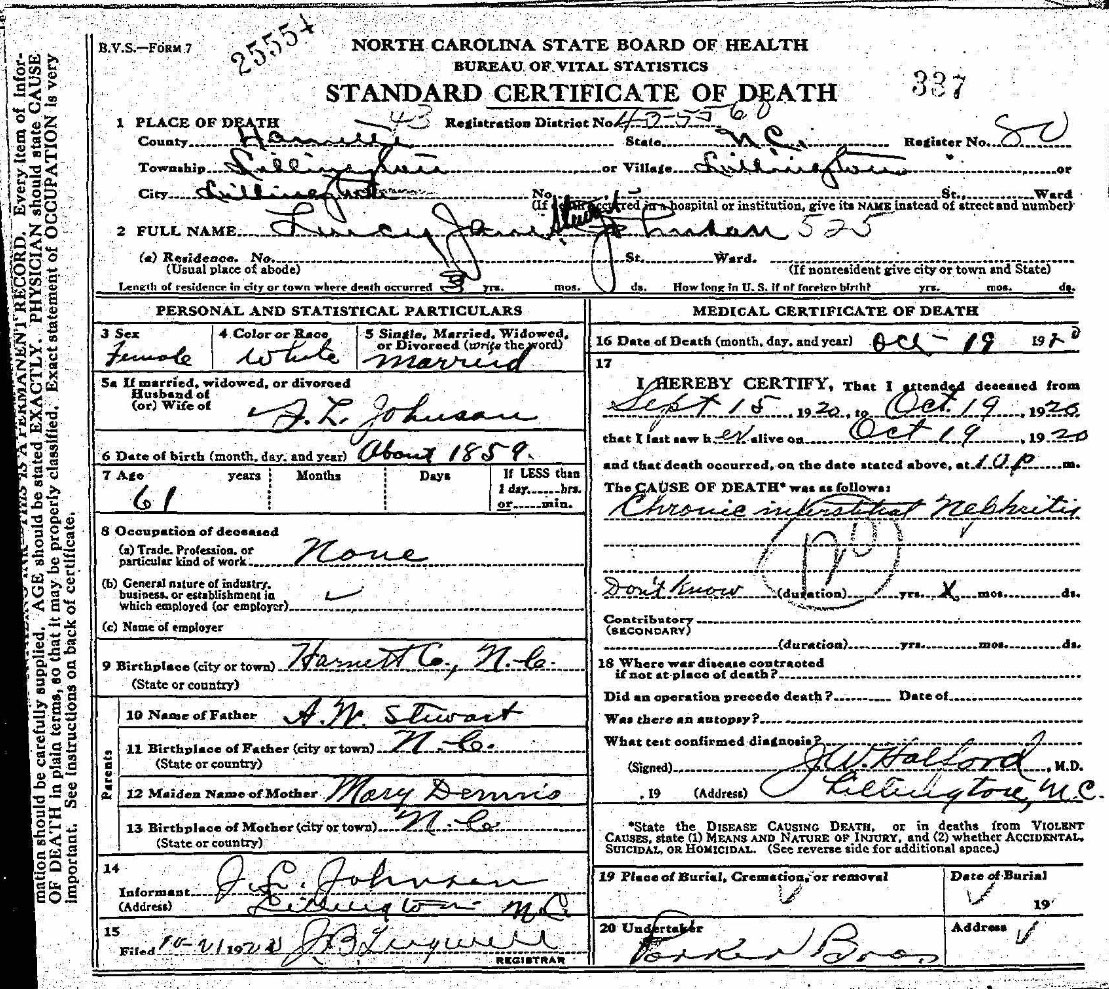 B.V.S.—FORM 7
25554
NORTH CAROLINA STATE BOARD OF HEALTH
BUREAU OF VITAL STATISTICS
337
STANDARD CERTIFICATE OF DEATH
1 PLACE OF DEATH 43 Registration District No. 43-55 60
County Harnett State N.C. Register No. 80
Township Lillington or Village Lillington or
City Lillington No. St., Ward
(If death occurred in a hospital or institution, give its NAME instead of street and number)
2 FULL NAME Lucy Jane Stewart Johnson 525
(a) Residence. No. St., Ward.
(Usual place of abode) (If nonresident give city or town and State)
Length of residence in city or town where death occurred yrs. mos. ds. How long in U. S. if of foreign birth? yrs. mos. ds.
PERSONAL AND STATISTICAL PARTICULARS
3 Sex 4 Color or Race 5 Single, Married, Widowed, or Divorced (write the word)
Female White Married
5a If married, widowed, or divorced
Husband of
(or) Wife of J. L. Johnson
6 Date of birth (month, day, and year) About 1859.
7 Age years Months Days If LESS than
1 day......hrs.
61 or......min.
8 Occupation of deceased
(a) Trade, Profession, or
particular kind of work None
(b) General nature of industry,
business, or establishment in
which employed (or employer)
(c) Name of employer
9 Birthplace (city or town) Harnett Co., N.C.
(State or country)
Parents
10 Name of Father A. W. Stewart
11 Birthplace of Father (city or town) N.C.
(State or country)
12 Maiden Name of Mother Mary Dennis
13 Birthplace of Mother (city or town) N.C.
(State or country)
14
Informant J. L. Johnson
(Address) Lillington N.C.
15
Filed 10-21 192
REGISTRAR
MEDICAL CERTIFICATE OF DEATH
16 Date of Death (month, day, and year) Oct- 19 1920
17
I HEREBY CERTIFY, That I attended deceased from
Sept 15, 1920, to Oct. 19, 1920
that I last saw her alive on Oct 19, 1920
and that death occurred, on the date stated above, at 10 p m.
The CAUSE OF DEATH* was as follows:
Chronic interstitial Nephritis
Don't know (duration) yrs. X mos. ds.
Contributory
(SECONDARY)
(duration) yrs. mos. ds.
18 Where was disease contracted
if not at place of death?
Did an operation precede death? Date of
Was there an autopsy?
What test confirmed diagnosis?
(Signed) J.W. Halford, M.D.
, 19 (Address) Lillington, N.C.
*State the DISEASE CAUSING DEATH, or in deaths from VIOLENT
CAUSES, state (1) MEANS AND NATURE OF INJURY, and (2) whether ACCIDENTAL,
SUICIDAL, OR HOMICIDAL. (See reverse side for additional space.)
19 Place of Burial, Cremation, or removal Date of Burial
19
20 Undertaker Address
Bros
mation should be carefully supplied. AGE should be stated EXACTLY. PHYSICIAN should state CAUSE
OF DEATH in plain terms, so that it may be properly classified. Exact statement of OCCUPATION is very
important. See instructions on back of certificate.
THIS IS A PERMANENT RECORD. Every item of infor-